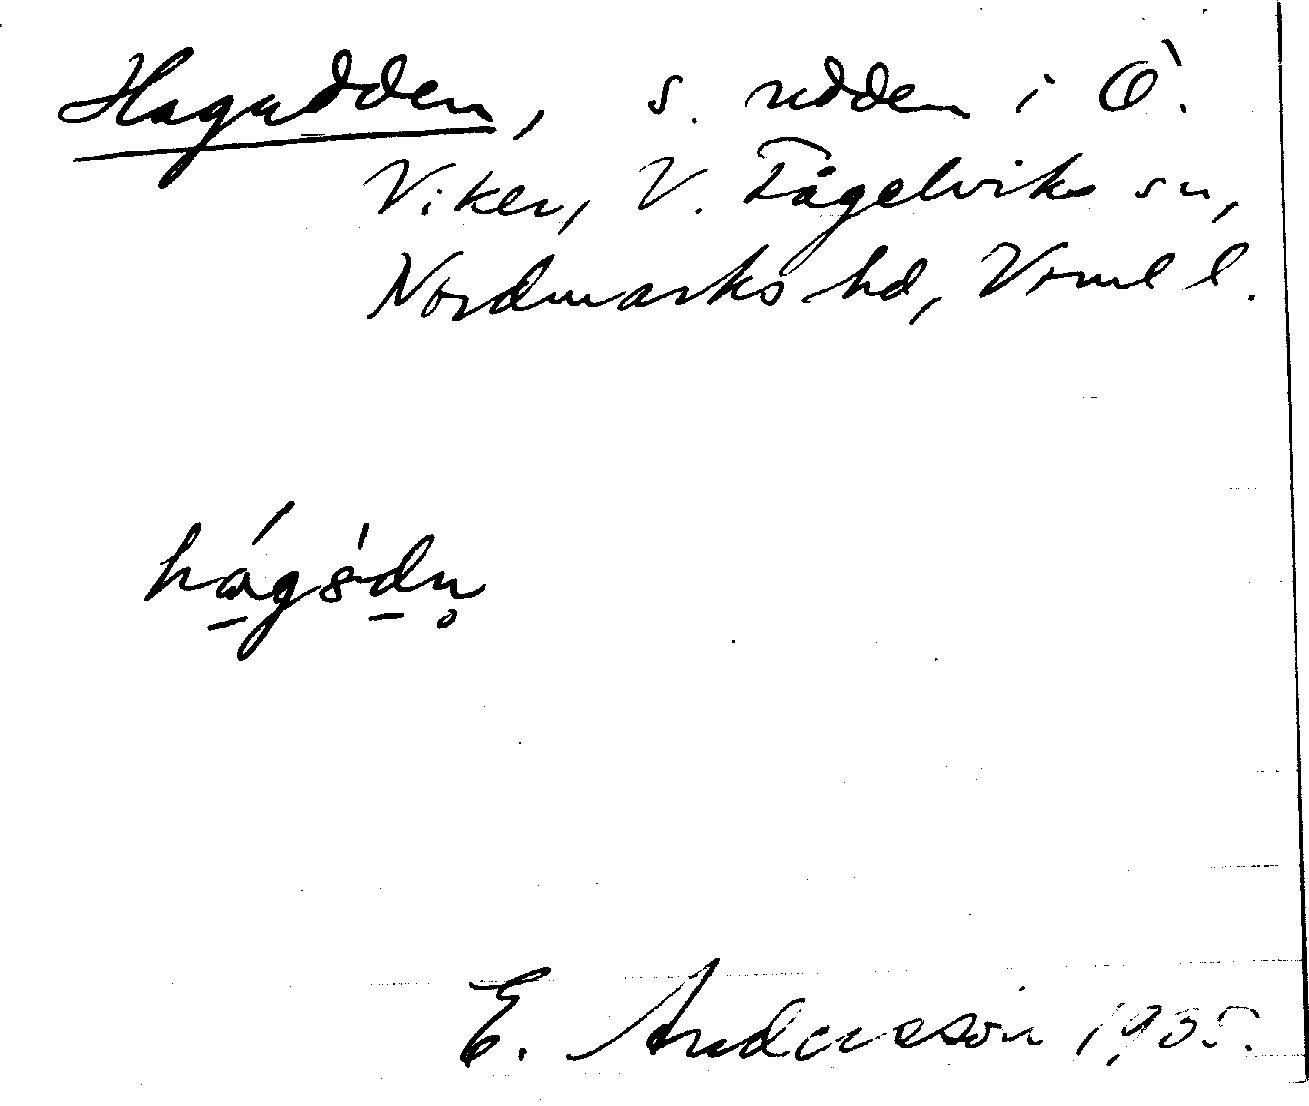 Hagudden, s. udden i Ö.
Viken, V. Fågelviks sn,
Nordmarks hd, Vrml l.
E. Andersson 1935.